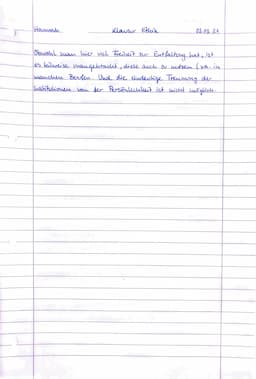 Hannah Klausur Ethik 02.05.24
Obwohl man hier viel Freiheit zur Entfaltung hat, ist
es teilweise unangebracht, diese auch zu nutzen (z.B. in
manchen Berufen. Und die eindeutige Trennung der
Institutionen von der Persönlichkeit ist nicht möglich